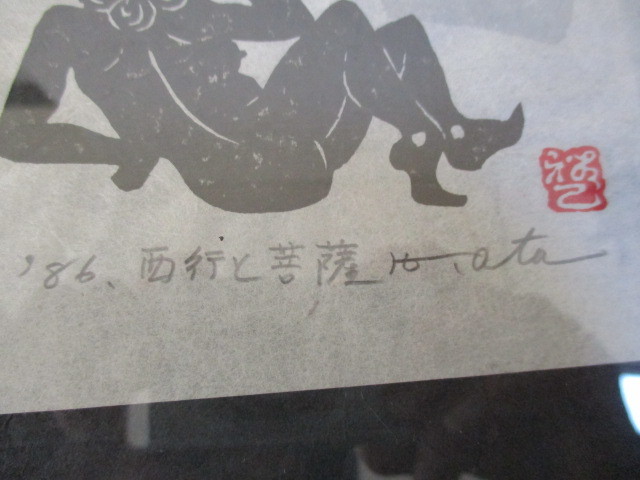 '86、西行と菩薩 H. Ota